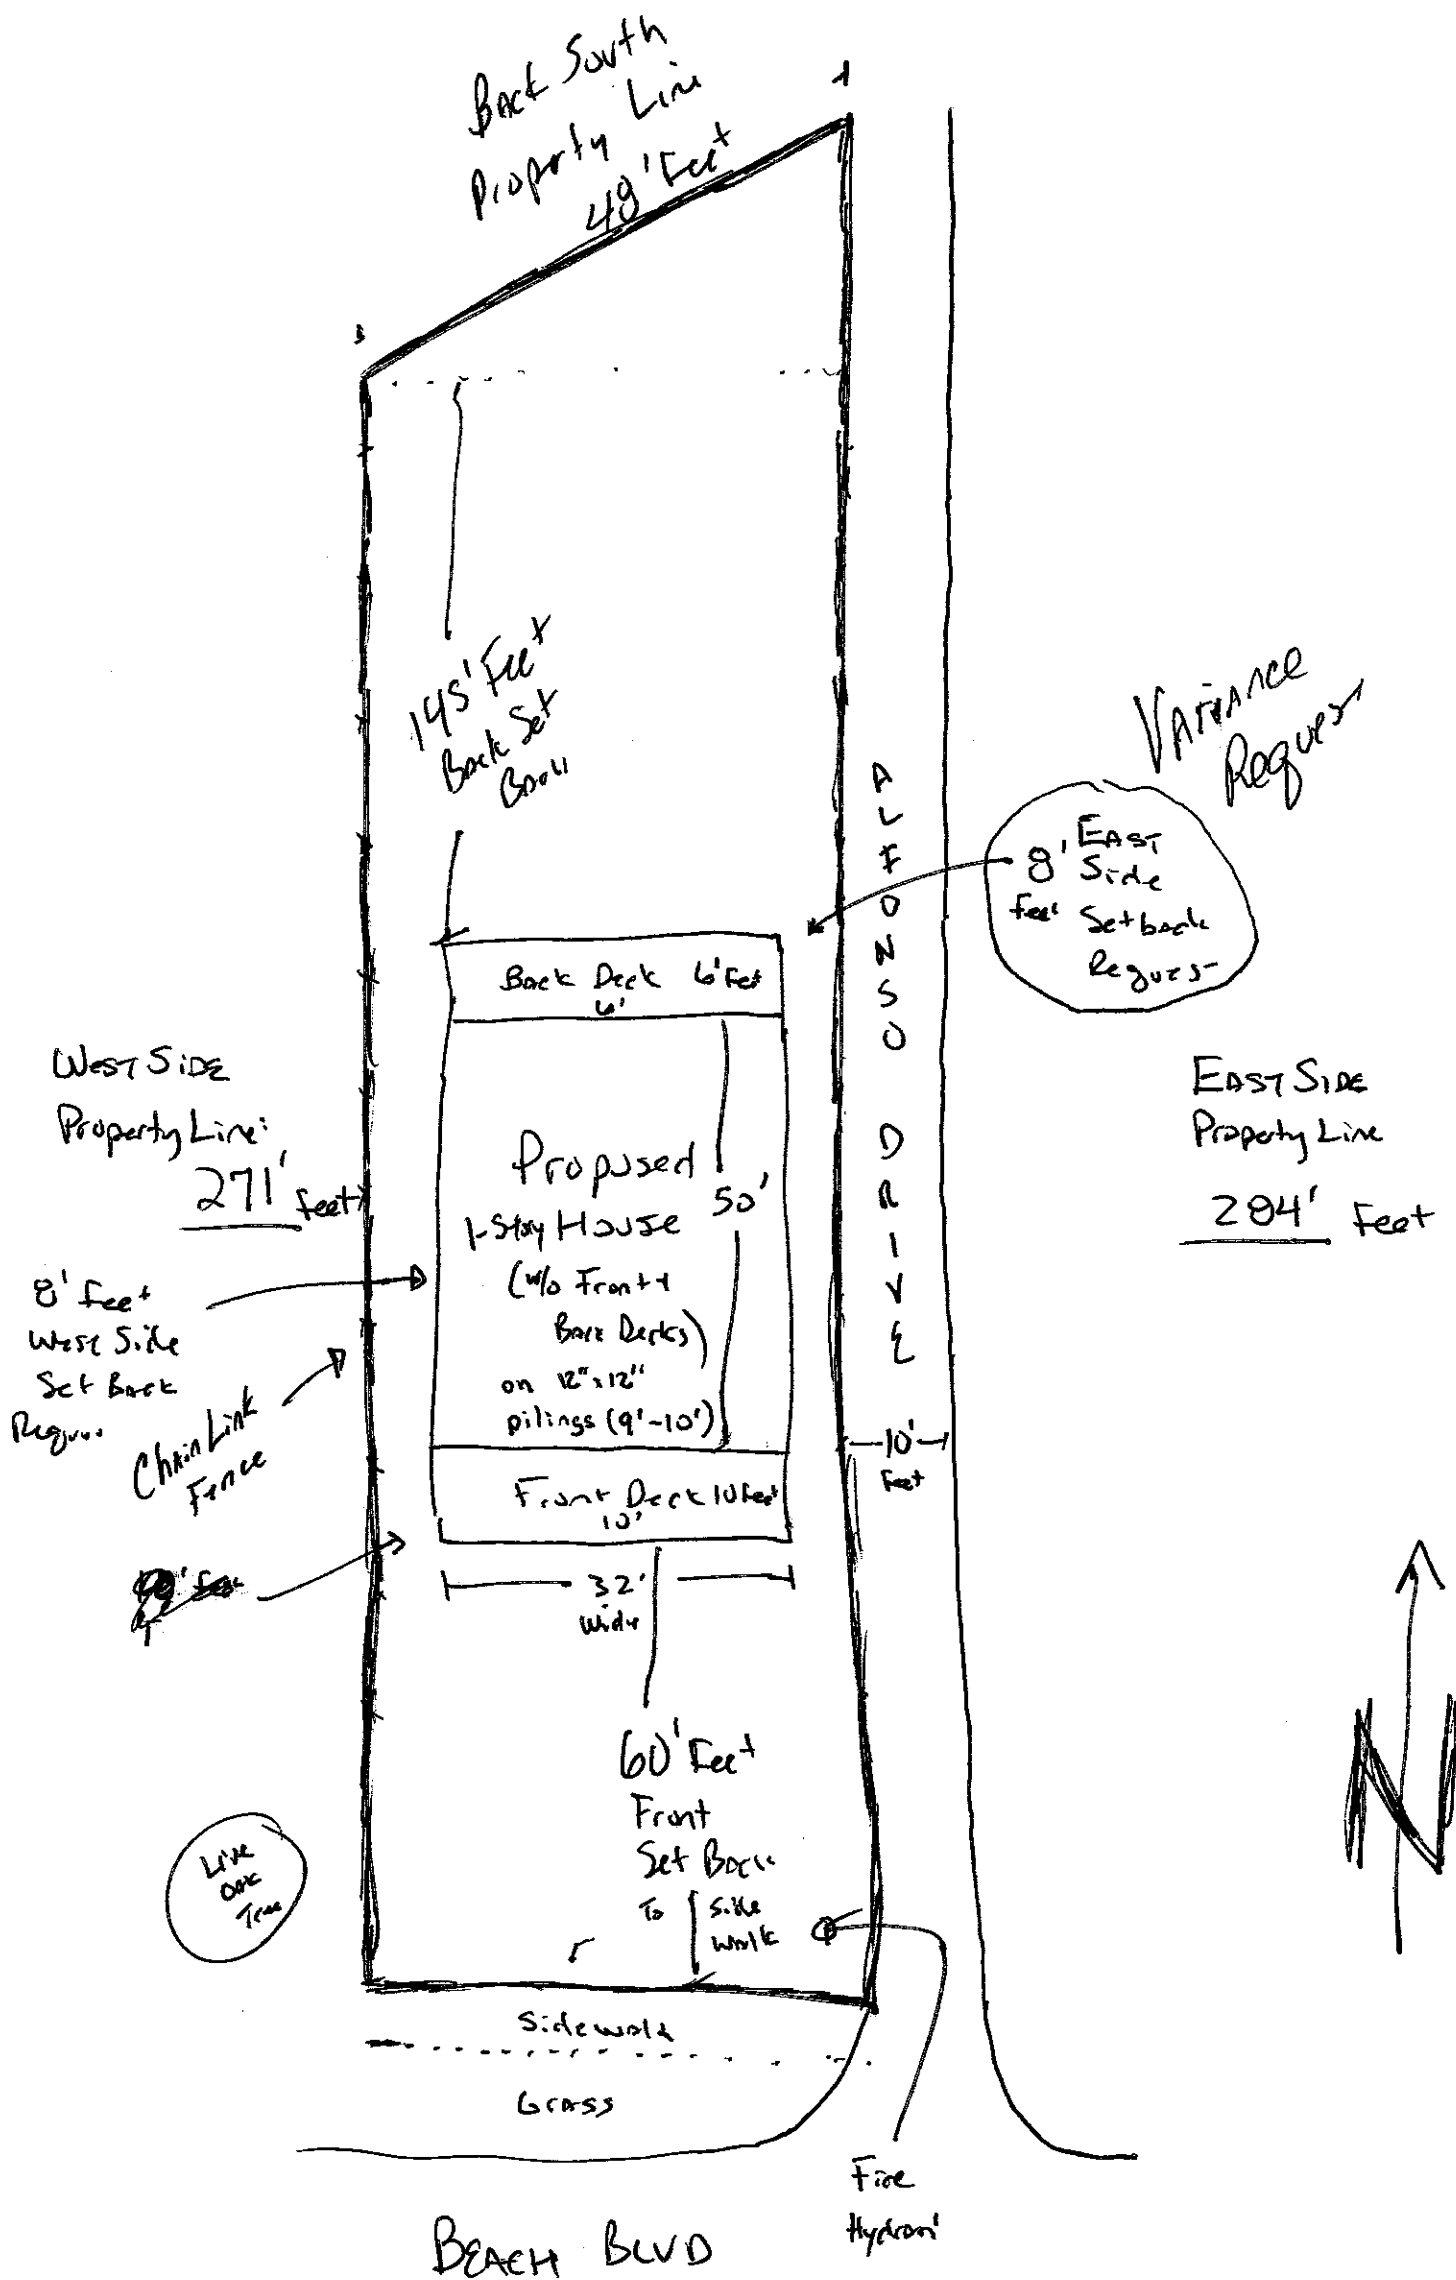 Back South
Property Line
48' Feet
145' Feet
Back Set
Back
Variance
Reques
8' East
Feet Side
Setback
Reques
ALFONSO DRIVE
Back Deck 6' Feet
6'
West Side
Property Line:
271' feet
East Side
Property Line
284' Feet
Proposed
1-Story House
(w/o Front &
Back Decks)
on 12"x12"
pilings (9'-10')
50'
8' Feet
West Side
Set Back
Chain Link
Fence
10'
Feet
Front Deck 10 Feet
10'
32'
wide
60' Feet
Front
Set Back
To side
walk
Live
Oak
Tree
N
Sidewalk
Grass
Fire
Hydrant
BEACH BLVD